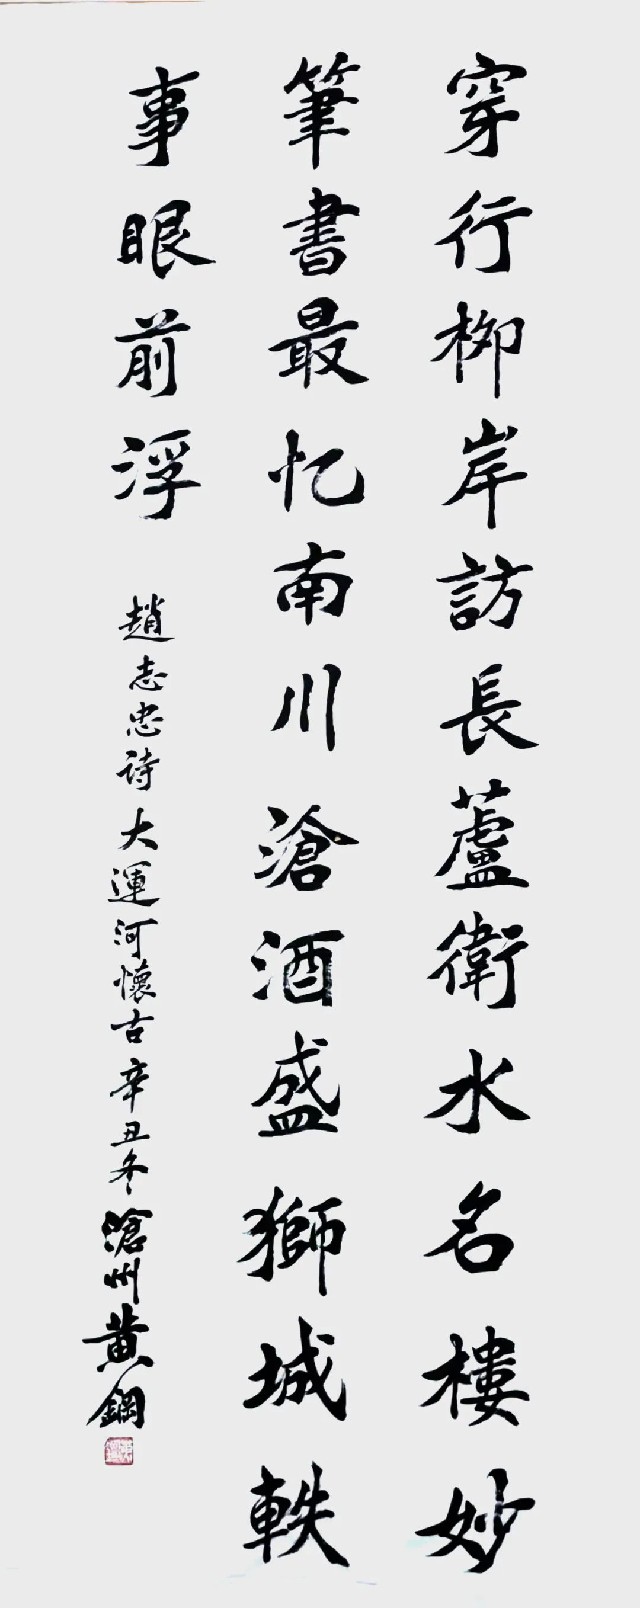 穿行柳岸訪長蘆衛水名樓妙
筆書最忆南川滄酒盛獅城軼
事眼前浮
趙志忠诗大運河懷古辛丑冬滄州黄鋼